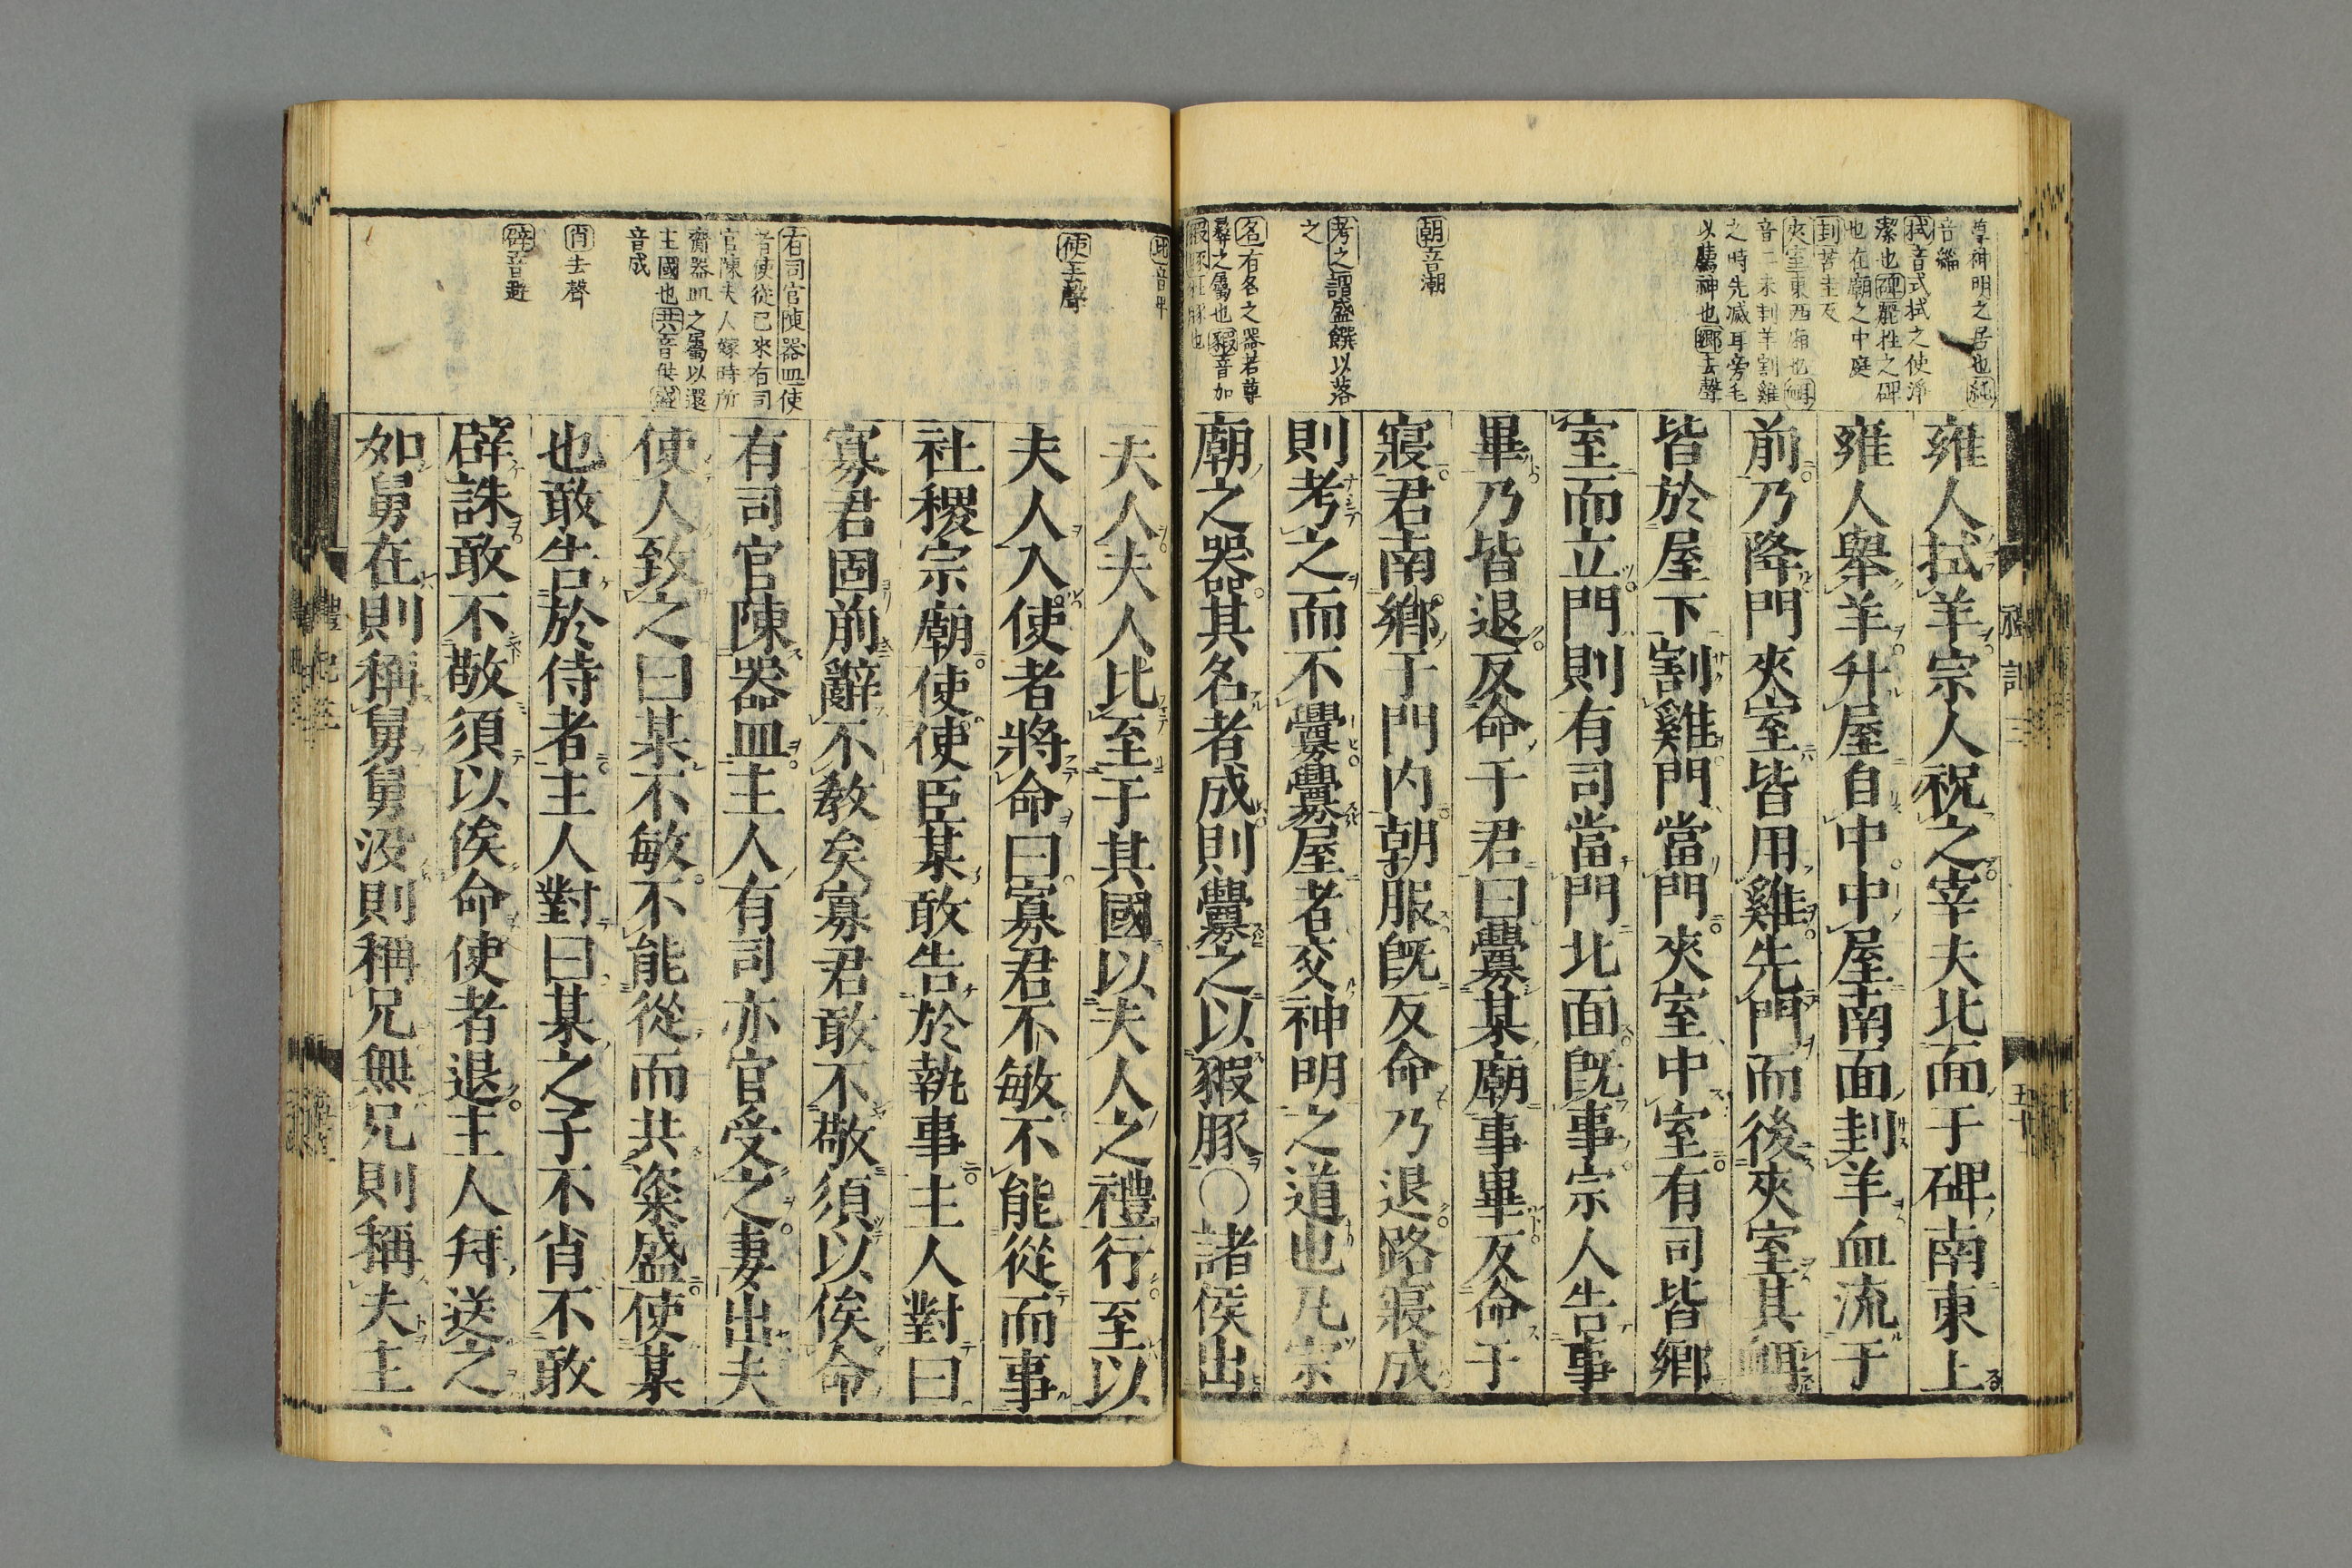 尊神明之居也純
音緇
拭音式拭之使淨
潔也碑麗牲之碑
也在廟之中庭
刲苦圭反
夾室東西廂也衈
音二未刲羊割雞
之時先滅耳旁毛
以薦神也鄉去聲
朝音潮
考之謂盛饌以落
之
名有名之器若尊
彝之屬也豭音加
豭豚牡豚也
雍人拭羊宗人祝之宰夫北面于碑南東上
雍人舉羊升屋自中中屋南面刲羊血流于
前乃降門夾室皆用雞先門而後夾室其衈
皆於屋下割雞門當門夾室中室有司皆鄉
室而立門則有司當門北面既事宗人告事
畢乃皆退反命于君曰釁某廟事畢反命于
寢君南鄉于門內朝服既反命乃退路寢成
則考之而不釁釁屋者交神明之道也凡宗
廟之器其名者成則釁之以豭豚○諸侯出
禮記三
五十
比音畀
使去聲
有司官陳器皿使
者使從已來有司
官陳夫人嫁時所
齎器皿之屬以還
主國也共音供盛
音成
肖去聲
辟音避
夫人夫人比至于其國以夫人之禮行至以
夫人入使者將命曰寡君不敏不能從而事
社稷宗廟使使臣某敢告於執事主人對曰
寡君固前辭不教矣寡君敢不敬須以俟命
有司官陳器皿主人有司亦官受之妻出夫
使人致之曰某不敏不能從而共粢盛使某
也敢告於侍者主人對曰某之子不肖不敢
辟誅敢不敬須以俟命使者退主人拜送之
如舅在則稱舅舅沒則稱兄無兄則稱夫主
禮記三